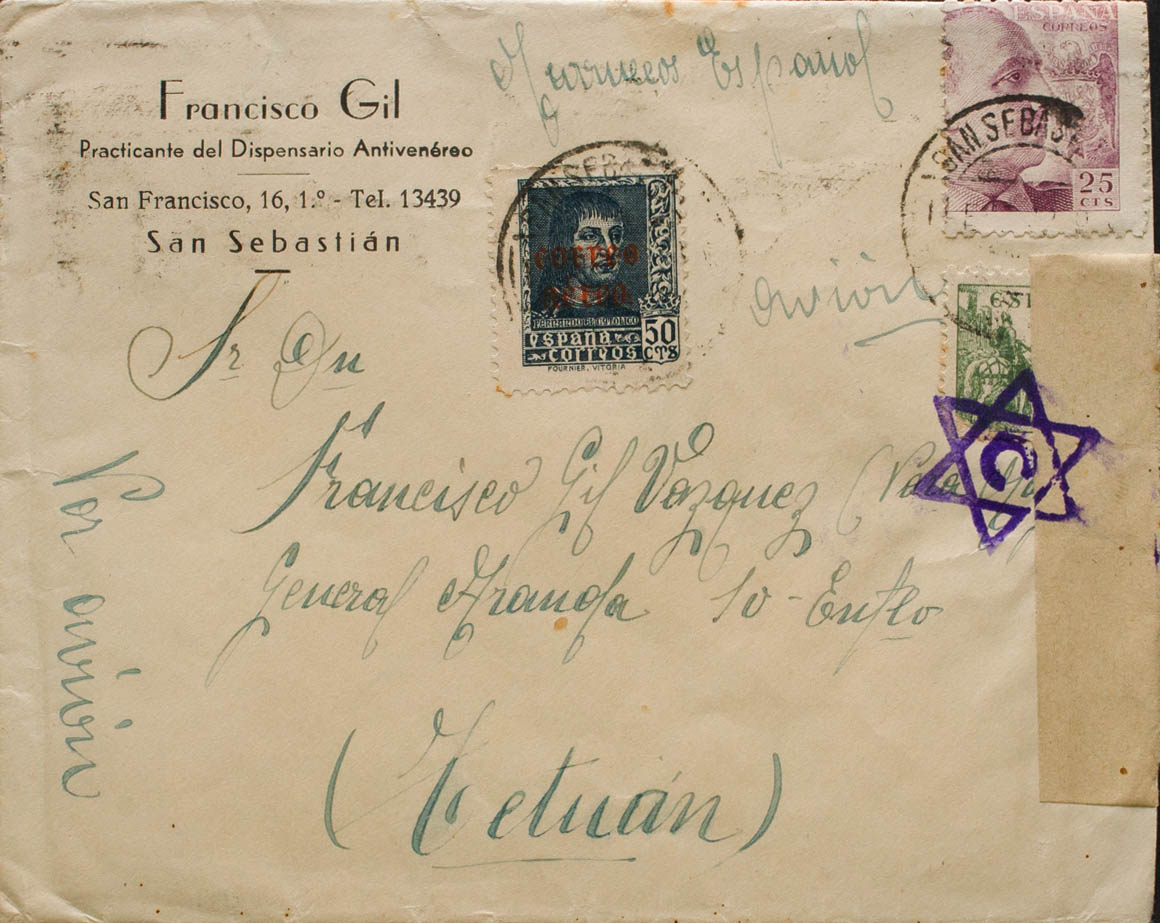 Francisco Gil
Practicante del Dispensario Antivenéreo
San Francisco, 16, 1.° - Tel. 13439
San Sebastián
Marruecos Español
ESPAÑA
CORREOS
25
CTS
SAN SEBAS
correo
aereo
FERNANDO EL CATOLICO
españa
correos
50
CTS
FOURNIER. VITORIA
avión
C
Sr Dn
Francisco Gil Vazquez (Para
General Aranda 10 - Entlo
(Tetuán)
Por avión